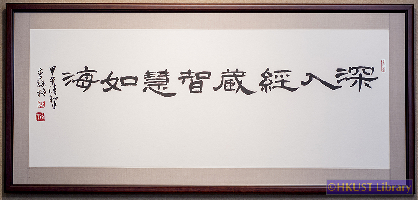 深入經藏智慧如海
©HKUST Library